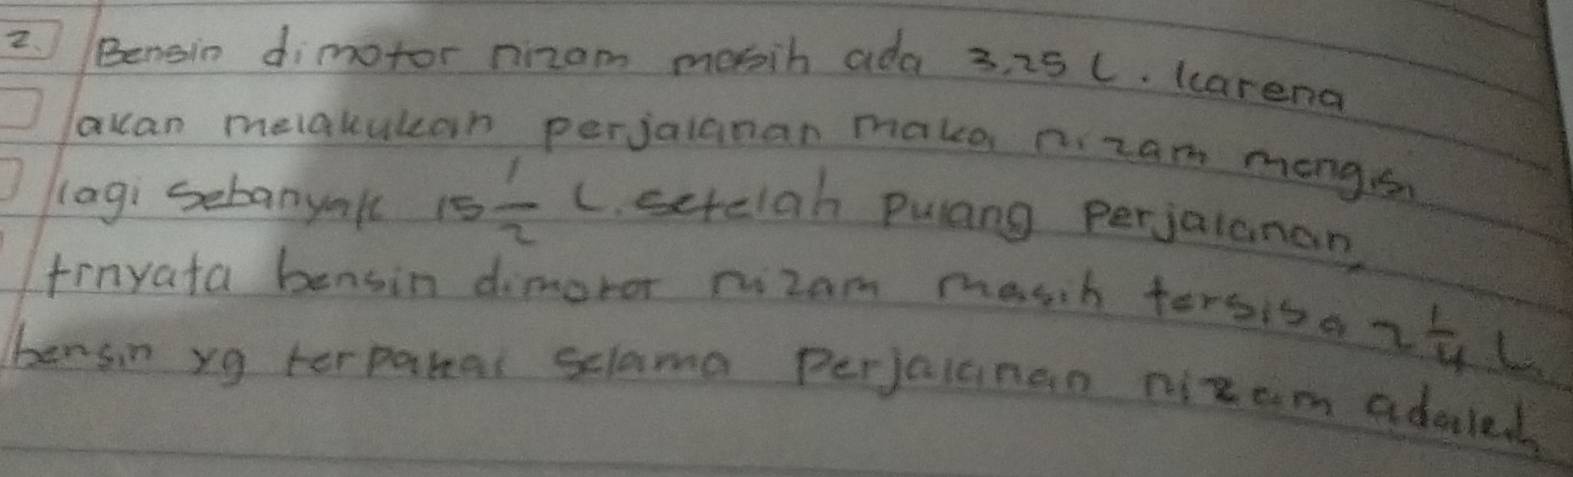 2. Bensin dimotor nizam masih ada 3,25 L. Karena
akan melakukan perjalanan maka nizam mengisi
lagi sebanyak 15 1/2 L. setelah pulang perjalanan
trnyata bensin dimotor nizam masih tersisa 2 1/4 L
bensin yg terpakai selama perjalanan nizam adalah